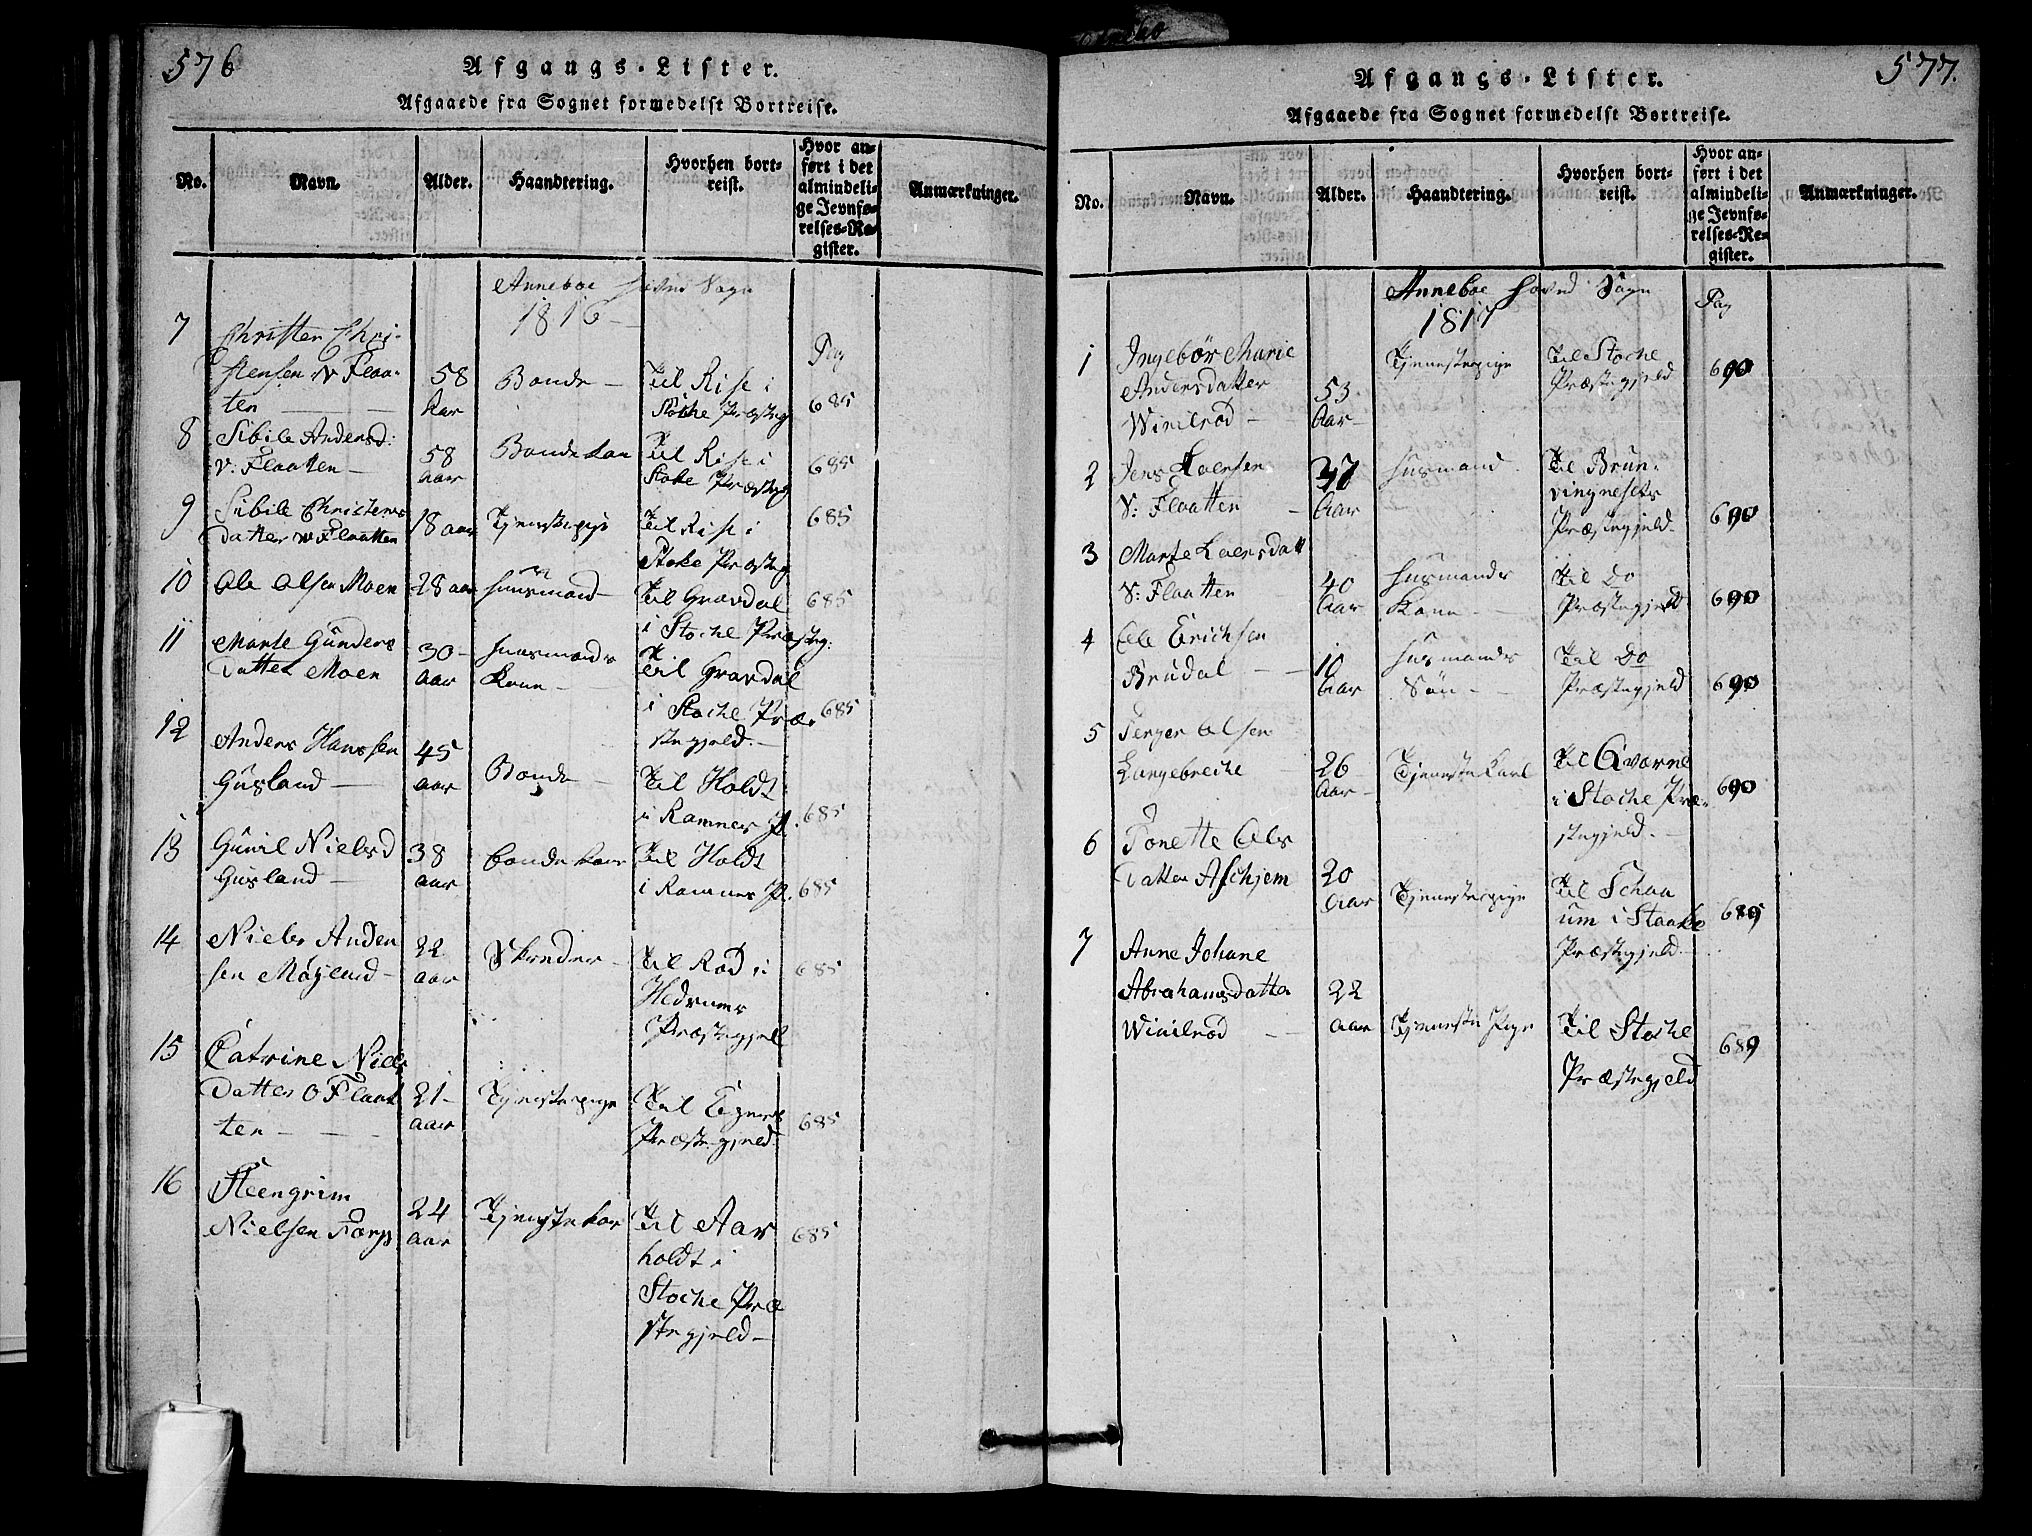 576
Afgangs-Lister.
Afgaaede fra Sognet formedelst Bortreise.
No. Navn. Alder. Haandtering. Hvorhen bortreist. Hvor anført i det almindelige Jevnførelses-Register. Anmærkninger.
Anneboe Hoved Sogn
1816
Pag
7 Christen Chri-
stensen N Flaa-
ten 58 Aar Bonde Til Rise i Stoche Præsteg 685
8 Sibile Andersd:
V: Flaatten 58 aar Bondekon Til Rise i Stoke Præsteg 685
9 Sibile Christens
Datter N Flaatten 18 aar Tjenestepige Til Rise i Stoke Præsteg 685
10 Ole Olsen Moen 28 aar Huusmand Til Gravdal i Stoche Præsteg: 685
11 Marte Gunders
Datter Moen 30 aar Huusmands Kone Til Gravdal i Stoche Præ-
stegjeld. 685
12 Anders Hanssen
Gusland 45 aar Bonde Til Holdt
i Ramnes P. 685
13 Gunil Nielsd
Gusland 38 aar Bondekone Til Holdt
i Ramnes P. 685
14 Niels Ander
sen Møyland 22 aar Skreder Til Rød i
Hedrums
Præstegjel 685
15 Catrine Niels
Datter O Flaat
ten 21 aar Tjenestepige Til Eגners
Præstegjeld. 685
16 Steengrim
Nielsen Torp 24 aar Tjenestekar Til Aar
holdt i
Stoche Præ
stegjeld 685
577.
Afgangs-Lister.
Afgaaede fra Sognet formedelst Bortreise.
No. Navn. Alder. Haandtering. Hvorhen bortreist. Hvor anført i det almindelige Jevnførelses-Register. Anmærkninger.
Anneboe Hoved Sogn
1817
Pag
1 Ingebör Marie
Andersdatter
Winilrød 53 Aar Tjenestepige Til Stoche
Præstegjeld 690
2 Jens Larsen
V: Flaatten 37 Aar Husmand Til Brun-
Præstegjeld. 690
3 Marte Laersdatt
V: Flaatten 40 Aar Husmands
Kone Til Do
Præstegjeld 690
4 Ole Erichsen
Brudal 10 Aar Husmands
Søn Til Do
Præstegjeld 690
5 Terger Olsen
Langebreche 26 Aar Tjenestekarl Til Qværne
i Stoche Præ-
stegjeld. 690
6 Tonette Ols
Datter Aschjem 20 Aar Tjenestepige Til Schau
um i Staake
Præstegjeld 689
7 Anne Johane
Abrahamsdatter
Winilrød 22 aar Tjeneste Pige Til Stoche
Præstegjeld 689